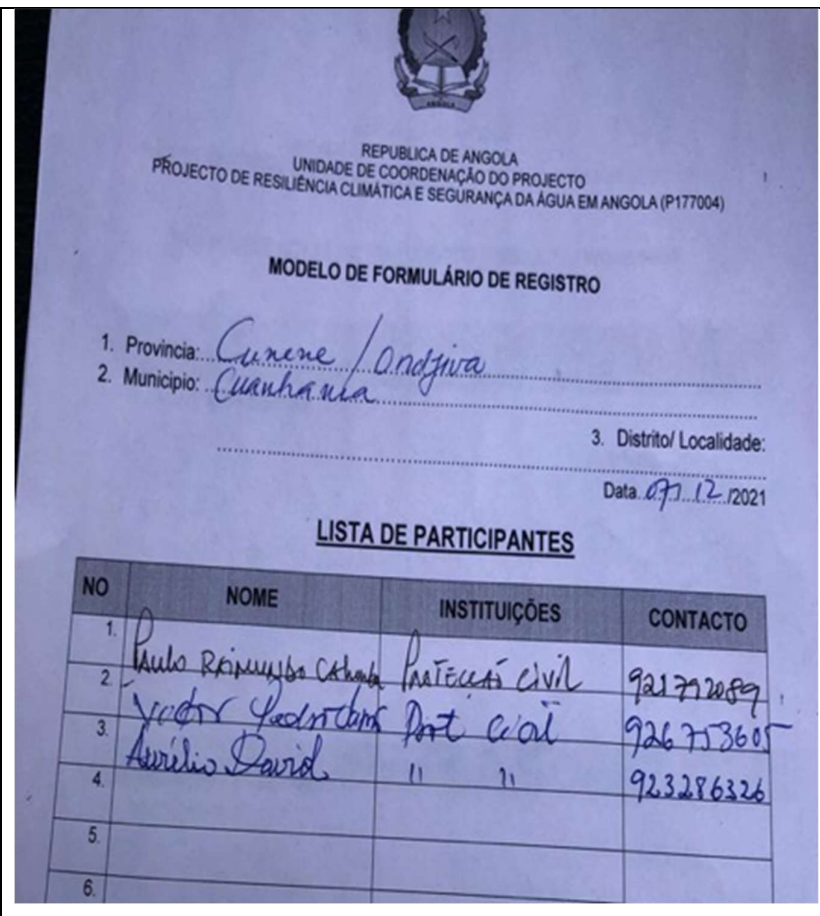 ANGOLA
REPUBLICA DE ANGOLA
UNIDADE DE COORDENAÇÃO DO PROJECTO
PROJECTO DE RESILIÊNCIA CLIMÁTICA E SEGURANÇA DA ÁGUA EM ANGOLA (P177004)
MODELO DE FORMULÁRIO DE REGISTRO
1. Provincia: Cunene / Ondjiva
2. Municipio: Cuanhama
3. Distrito/ Localidade:
Data 07/12/2021
LISTA DE PARTICIPANTES
NO NOME INSTITUIÇÕES CONTACTO
1. Paulo Raimundo Protecção Civil 921792089
2. Victor Pedro Prot Civil 926753605
3. Aurélio David " " 923286326
4.
5.
6.